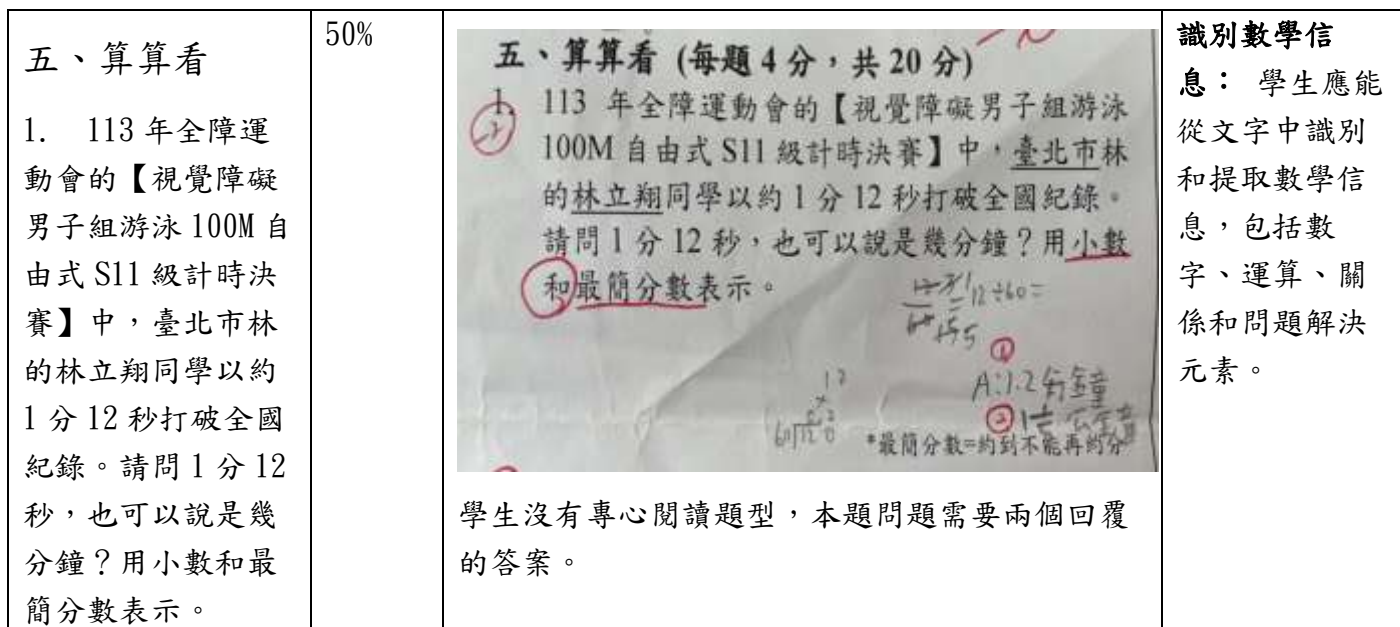 五、算算看
1. 113年全障運
動會的【視覺障礙
男子組游泳100M自
由式S11級計時決
賽】中，臺北市林
的林立翔同學以約
1分12秒打破全國
紀錄。請問1分12
秒，也可以說是幾
分鐘？用小數和最
簡分數表示。
50%
五、算算看 (每題4分，共20分)
1. 113 年全障運動會的【視覺障礙男子組游泳
100M 自由式 S11 級計時決賽】中，臺北市林
的林立翔同學以約 1 分 12 秒打破全國紀錄。
請問 1 分 12 秒，也可以說是幾分鐘？用小數
和最簡分數表示。
12÷60=
①
A:1.2分鐘
②
*最簡分數=約到不能再約分
學生沒有專心閱讀題型，本題問題需要兩個回覆
的答案。
識別數學信
息： 學生應能
從文字中識別
和提取數學信
息，包括數
字、運算、關
係和問題解決
元素。